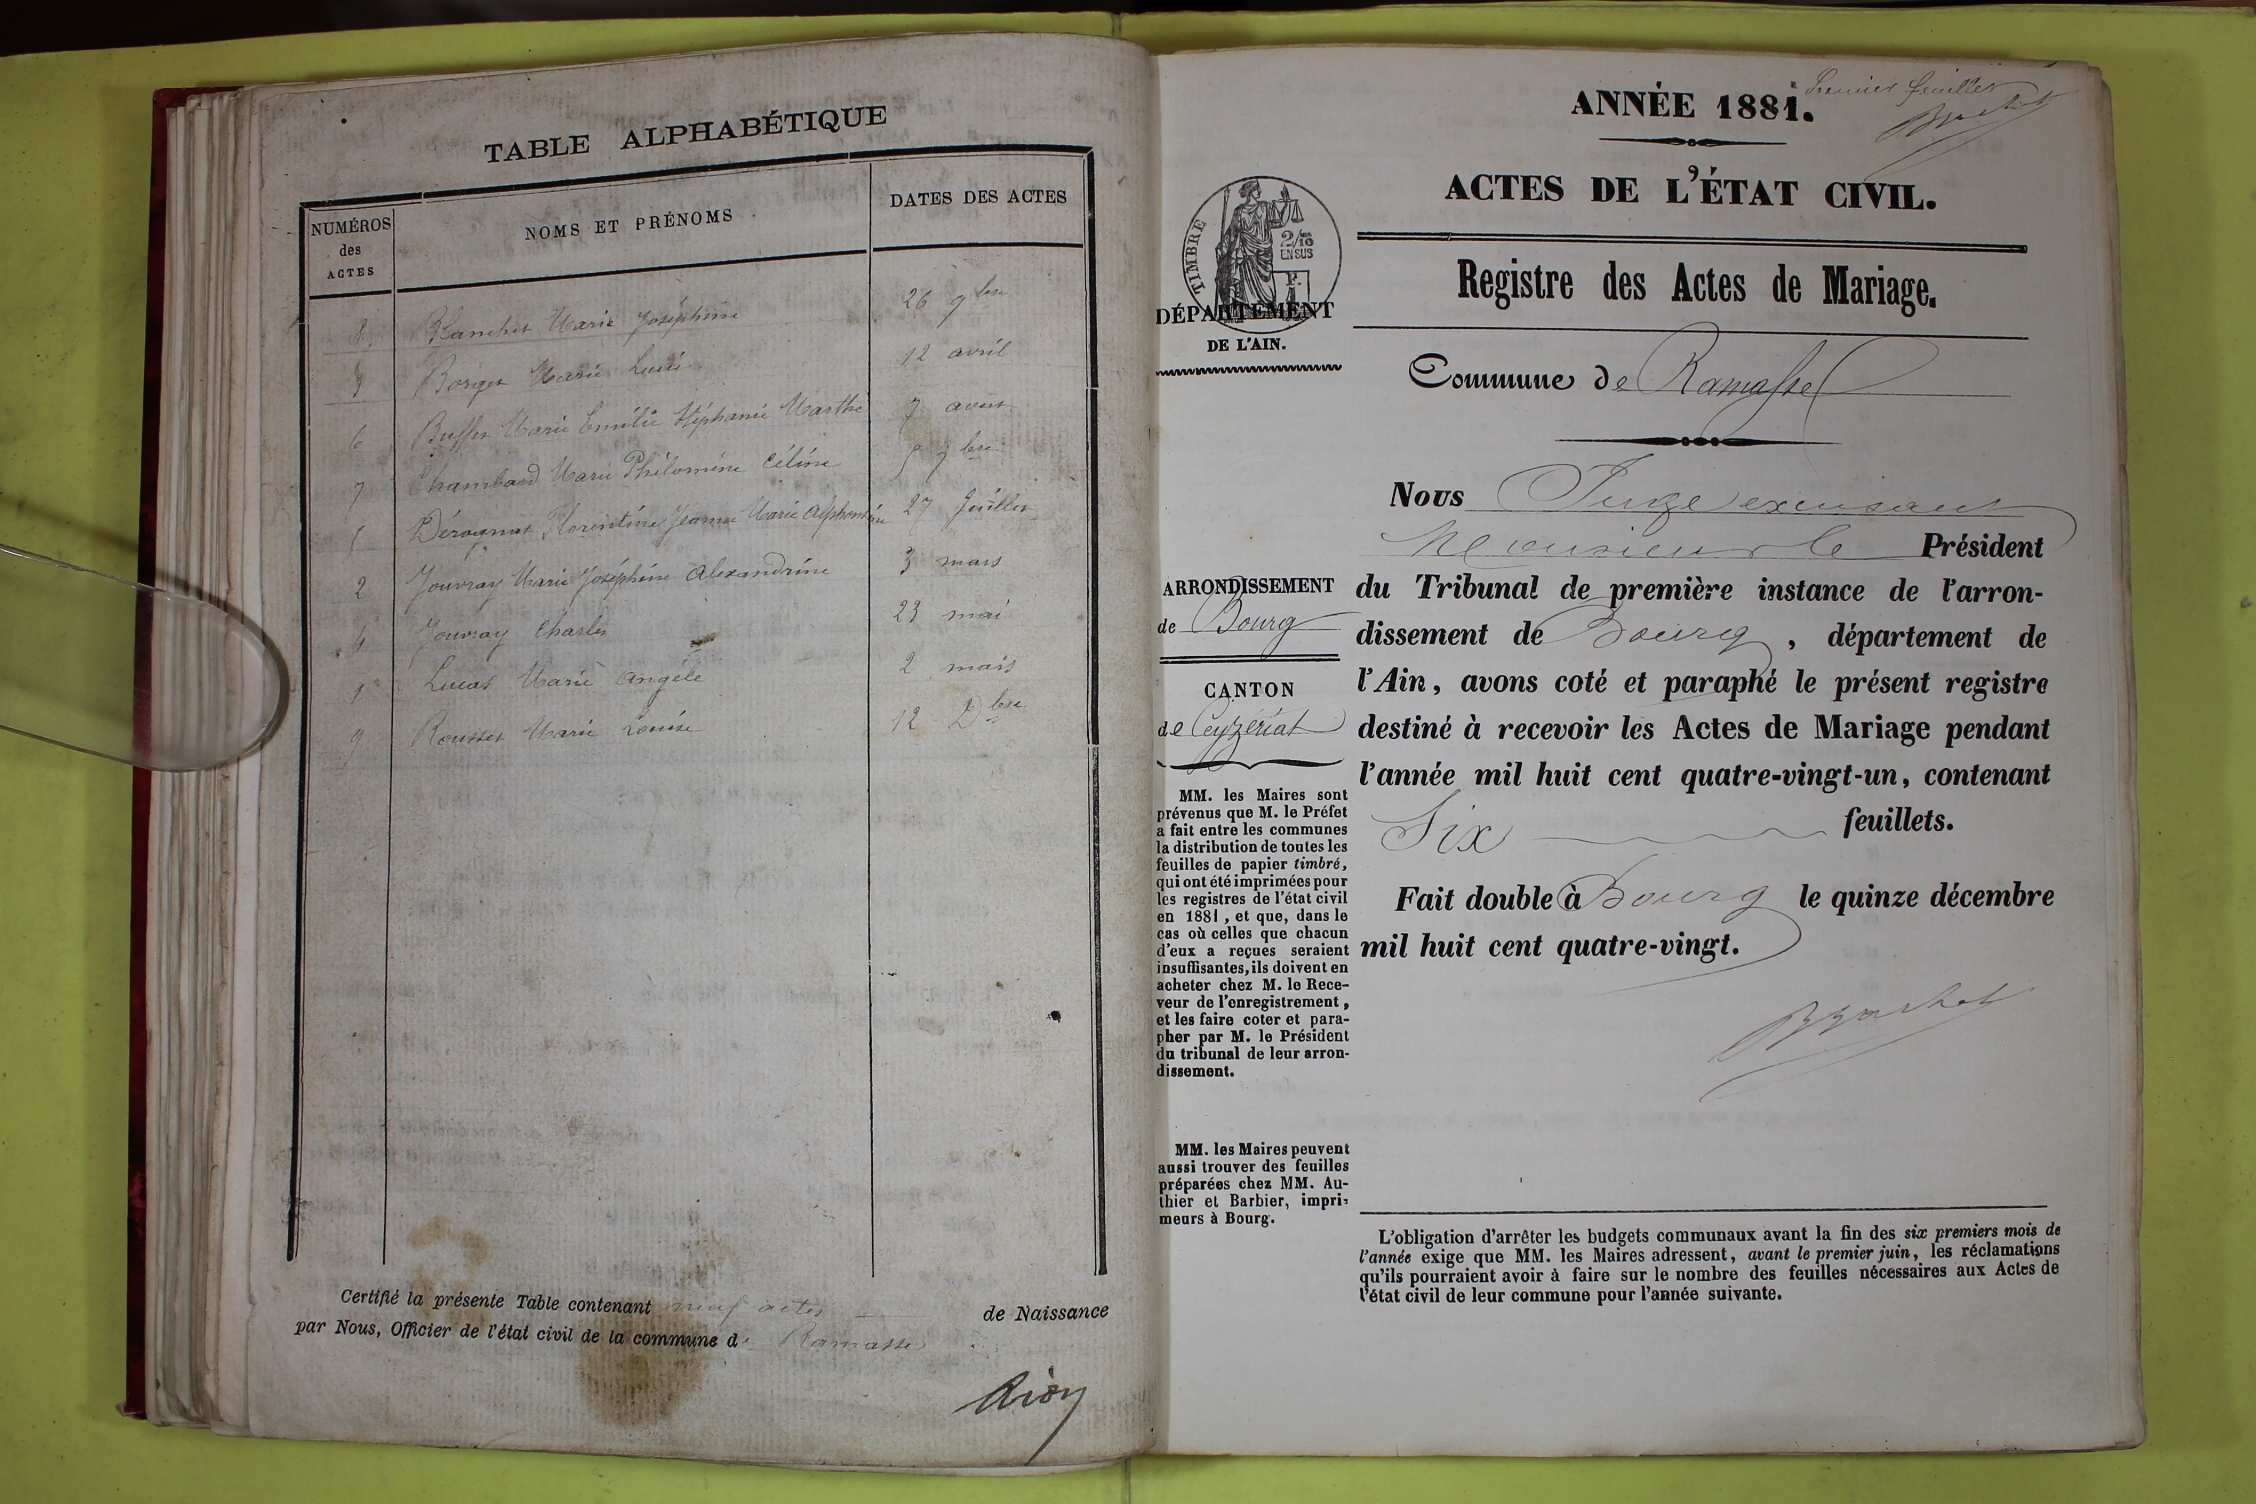 TABLE ALPHABÉTIQUE
NUMÉROS des ACTES
NOMS ET PRÉNOMS
DATES DES ACTES
8 Blanchet Marie Joséphine 26 9bre
3 Borget Marie Lucie 12 avril
6 Buffet Marie Emélie Stéphanie Marthe 7 aout
7 Chambard Marie Philomène Céline 9bre
5 Dérognat Florentine Jeanne Marie Alphonsine 27 Juillet
2 Jouvray Marie Joséphine Alexandrine 3 mars
4 Jouvray Charles 23 mai
1 Lucas Marie Angéle 2 mars
9 Rousset Marie Louise 12 Dbre
Certifié la présente Table contenant neuf actes de Naissance
par Nous, Officier de l'état civil de la commune de Ramasse
Premier feuillet
ANNÉE 1881.
ACTES DE L'ÉTAT CIVIL.
Registre des Actes de Mariage.
TIMBRE
2/10
EN SUS
DÉPARTEMENT
DE L'AIN.
Commune de Ramasse
Nous Juge excusant
Monsieur le Président
du Tribunal de première instance de l'arron-
dissement de Bourg, département de
l'Ain, avons coté et paraphé le présent registre
destiné à recevoir les Actes de Mariage pendant
l'année mil huit cent quatre-vingt-un, contenant
Six feuillets.
Fait double à Bourg le quinze décembre
mil huit cent quatre-vingt.
ARRONDISSEMENT
de Bourg
CANTON
de Ceyzériat
MM. les Maires sont
prévenus que M. le Préfet
a fait entre les communes
la distribution de toutes les
feuilles de papier timbré,
qui ont été imprimées pour
les registres de l'état civil
en 1881, et que, dans le
cas où celles que chacun
d'eux a reçues seraient
insuffisantes, ils doivent en
acheter chez M. le Rece-
veur de l'enregistrement,
et les faire coter et para-
pher par M. le Président
du tribunal de leur arron-
dissement.
MM. les Maires peuvent
aussi trouver des feuilles
préparées chez MM. Au-
thier et Barbier, impri-
meurs à Bourg.
L'obligation d'arrêter les budgets communaux avant la fin des six premiers mois de
l'année exige que MM. les Maires adressent, avant le premier juin, les réclamations
qu'ils pourraient avoir à faire sur le nombre des feuilles nécessaires aux Actes de
l'état civil de leur commune pour l'année suivante.